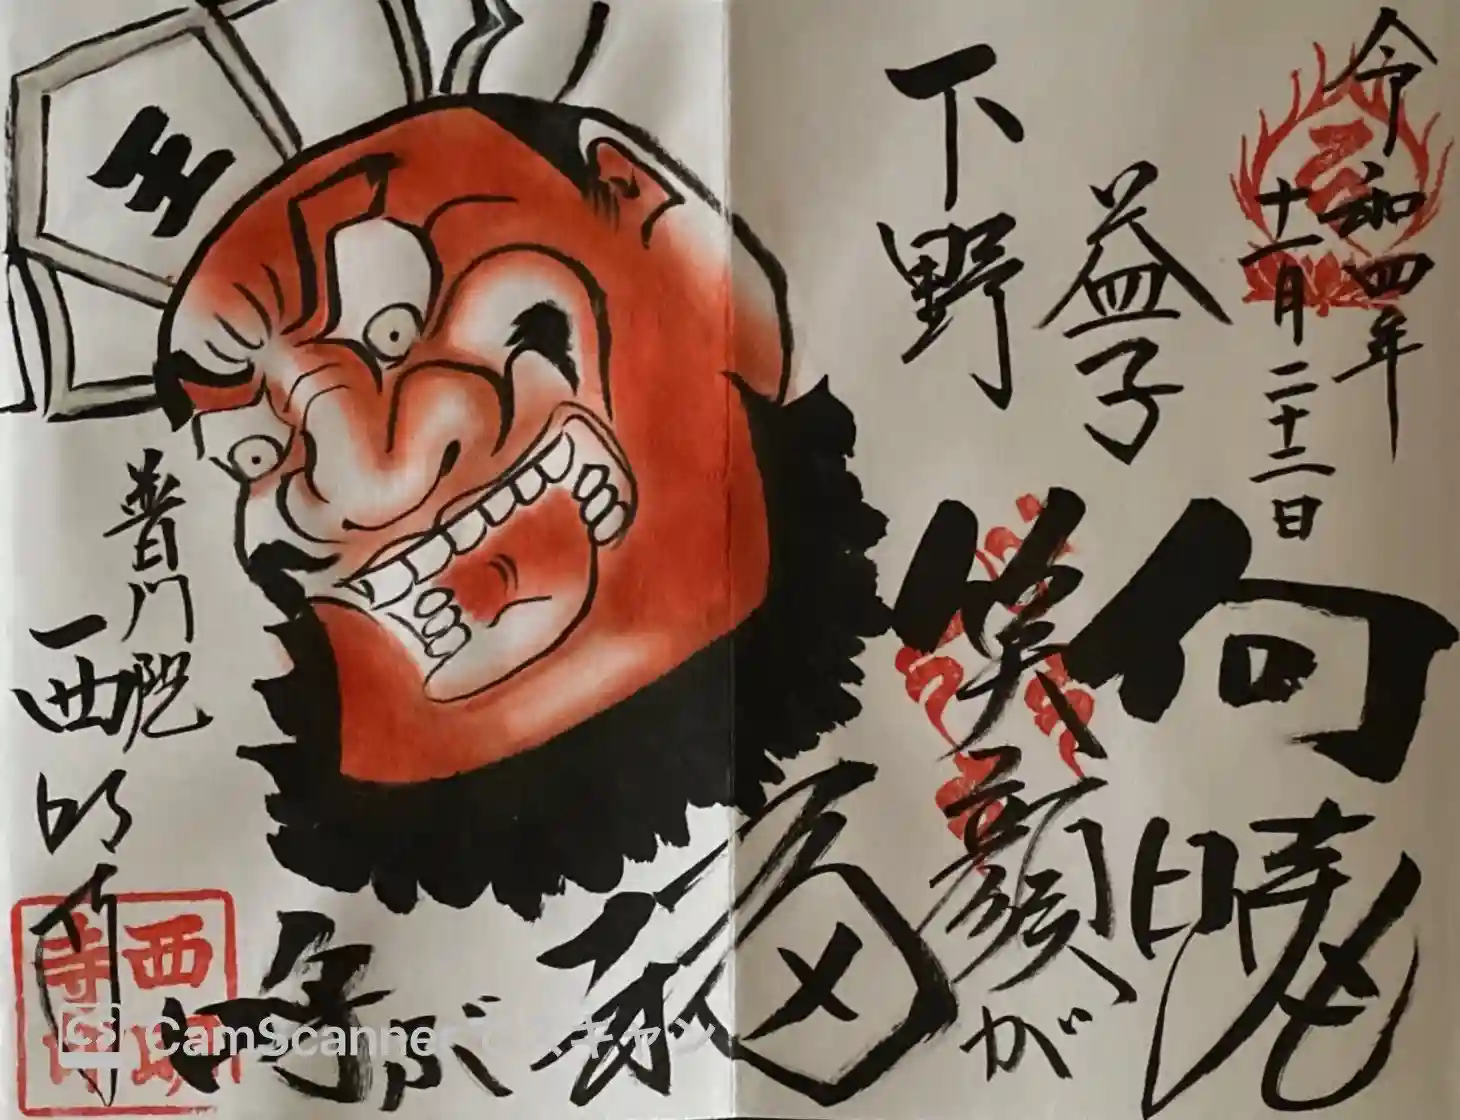 令和四年
十一月二十二日
益子
下野
向暁
笑顔が
福
を
呼ぶ
王
普門院
西明寺
西明
寺印
CamScannerでスキャン